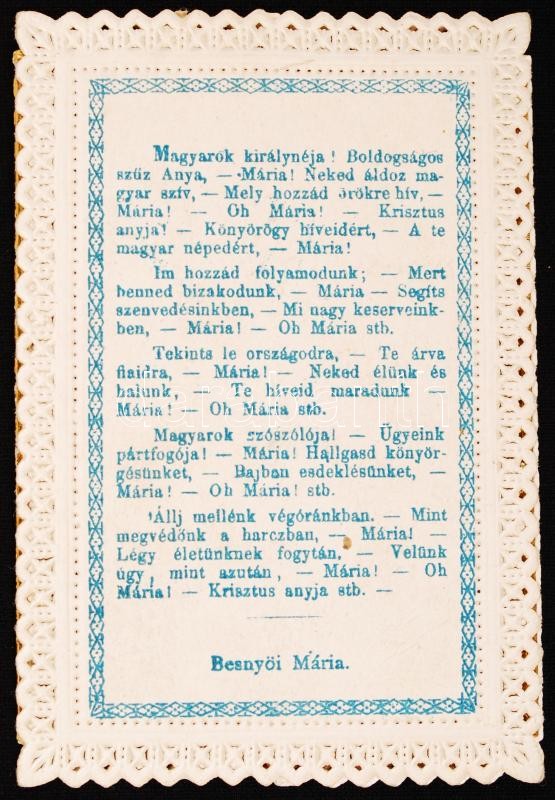 Magyarok királynéja! Boldogságos
szűz Anya, — Mária! Neked áldoz ma-
gyar szív, — Mely hozzád örökre hív, —
Mária! — Oh Mária! — Krisztus
anyja! — Könyörögy híveidért, — A te
magyar népedért, — Mária!
Im hozzád folyamodunk; — Mert
benned bizakodunk, — Mária — Segíts
szenvedésinkben, — Mi nagy keserveink-
ben, — Mária! — Oh Mária stb.
Tekints le országodra, — Te árva
fiaidra, — Mária! — Neked élünk és
halunk, — Te híveid maradunk —
Mária! — Oh Mária stb.
Magyarok szószólója! — Ügyeink
pártfogója! — Mária! Hallgasd könyör-
gésünket, — Bajban esdeklésünket, —
Mária! — Oh Mária! stb.
Állj mellénk végóránkban. — Mint
megvédőnk a harczban, — Mária! —
Légy életünknek fogytán, — Velünk
úgy, mint azután, — Mária! — Oh
Mária! — Krisztus anyja stb. —
Besnyöi Mária.
darabanth